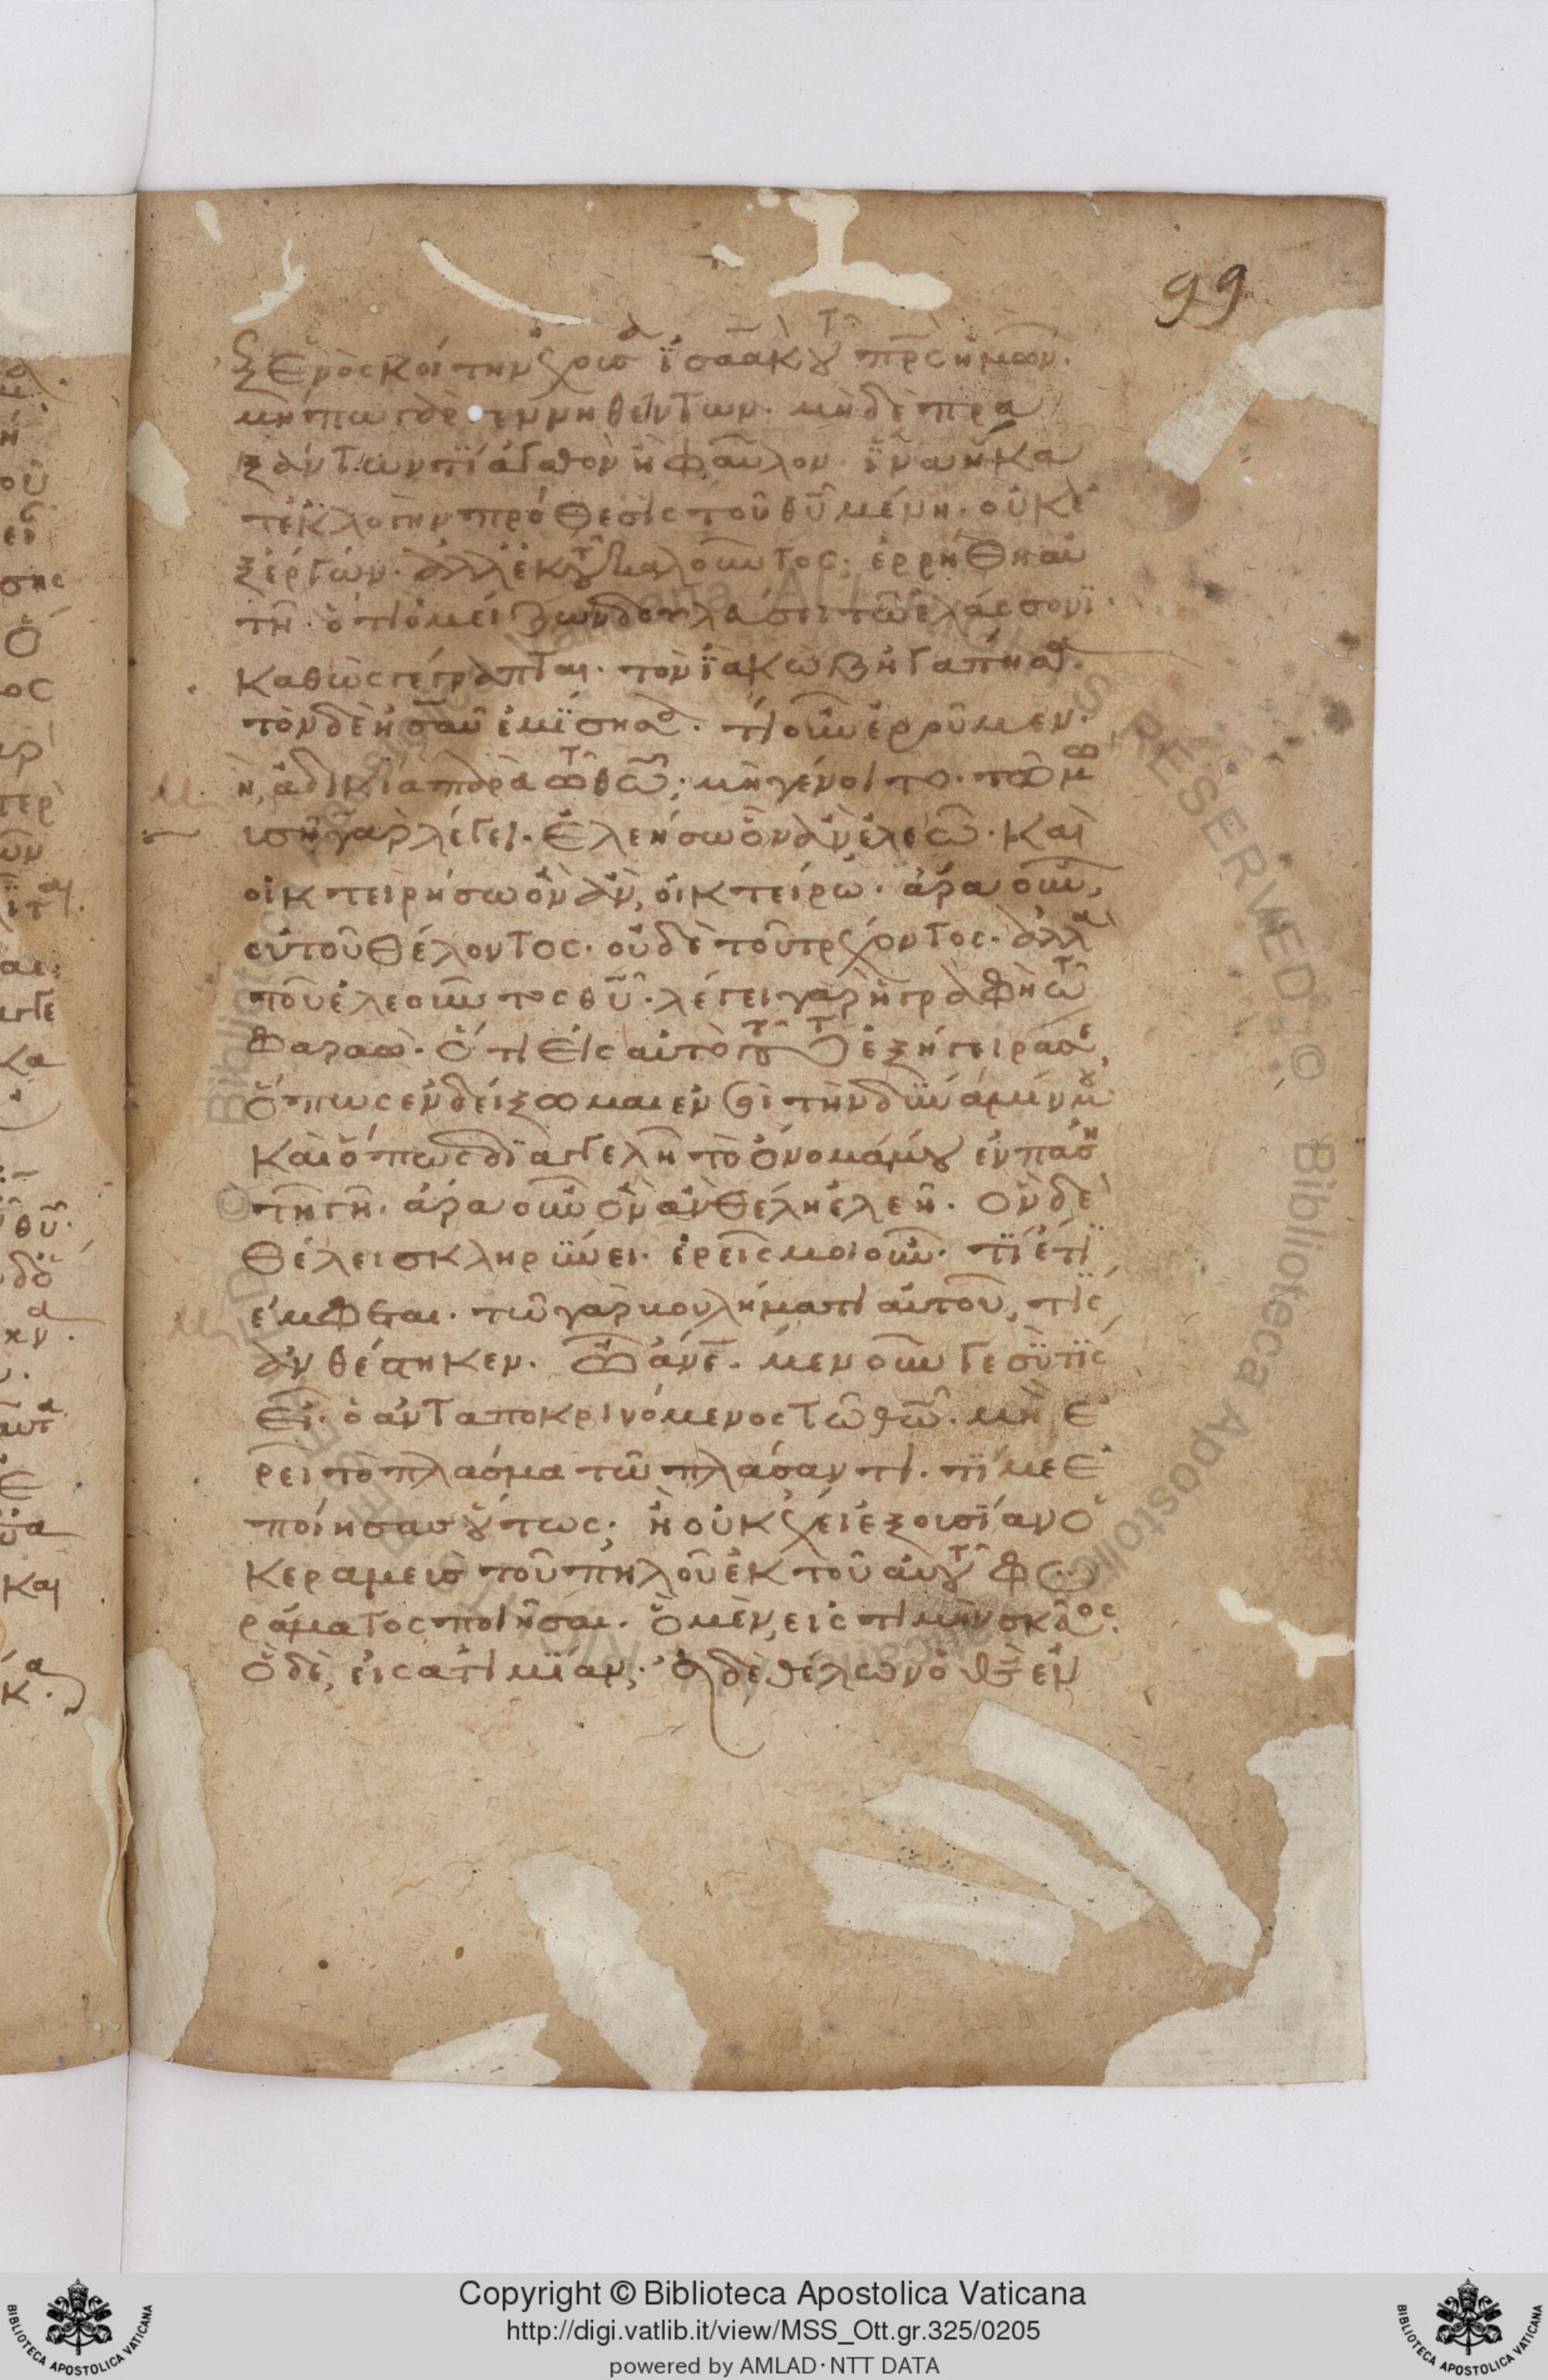 99
ξενὸς κοίτην ἔχουσα ἰσαὰκ τοῦ πρς ἡμῶν.
μήπω γὰρ γεννηθέντων. μὴδὲ πρα
ξάντων τὶ ἀγαθὸν ἢ φαῦλον. ἵνα ἡ κα
τ ἐκλογὴν πρόθεσις τοῦ θῦ μένη. οὐκ ἐ
ξ ἔργων. ἀλλ ἐκ τοῦ καλοῦντος· ἐρρήθη αὐ
τῆ. ὅτι ὁ μείζων δουλεύσει τῶ ἐλάσσονι
καθὼς γέγραπται. τὸν ἰακὼβ ἠγάπησα.
τὸν δὲ ἠσαῦ ἐμίσησα. τί οὖν ἐροῦμεν.
μὴ ἀδικία παρὰ τῶ θῶ; μὴ γένοιτο. τῶ μω
ισῆ γὰρ λέγει. ἐλεήσω ὃν ἂν ἐλεῶ. καὶ
οἰκτειρήσω ὃν ἂν, οἰκτείρω. ἄρα οὖν,
οὐ τοῦ θέλοντος. οὐδὲ τοῦ τρέχοντος. ἀλλὰ
τοῦ ἐλεοῦντος θῦ. λέγει γὰρ ἡ γραφὴ τῶ
φαραώ. ὅτι εἰς αὐτὸ τοῦτο ἐξήγειρά σε,
ὅπως ἐνδείξωμαι ἐν σοὶ τὴν δύναμίν μου
καὶ ὅπως διαγγελῆ τὸ ὄνομά μου ἐν πάση
τῆ γῆ. ἄρα οὖν ὃν ἂν θέλη ἐλεῆ. ὃν δὲ
θέλει σκληρύνει. ἐρεῖς μοι οὖν. τί ἔτι
μέμφεται. τῶ γὰρ βουλήματι αὐτοῦ, τίς
ἀνθέστηκεν. ὦ ἄνε. μενοῦν γε σὺ τίς
εἶ. ὁ ἀνταποκρινόμενος τῶ θῶ. μὴ ἐ
ρεῖ τὸ πλάσμα τῶ πλάσαντι. τί με ἐ
ποίησας οὕτως; ἢ οὐκ ἔχει ἐξουσίαν ὁ
κεραμεὺς τοῦ πηλοῦ ἐκ τοῦ αὐτοῦ φυ
ράματος ποιῆσαι. ὃ μὲν, εἰς τιμὴν σκεῦος.
ὃ δὲ, εἰς ἀτιμίαν; εἰ δὲ θέλων ὁ θς ἐν
Copyright © Biblioteca Apostolica Vaticana
http://digi.vatlib.it/view/MSS_Ott.gr.325/0205
powered by AMLAD·NTT DATA